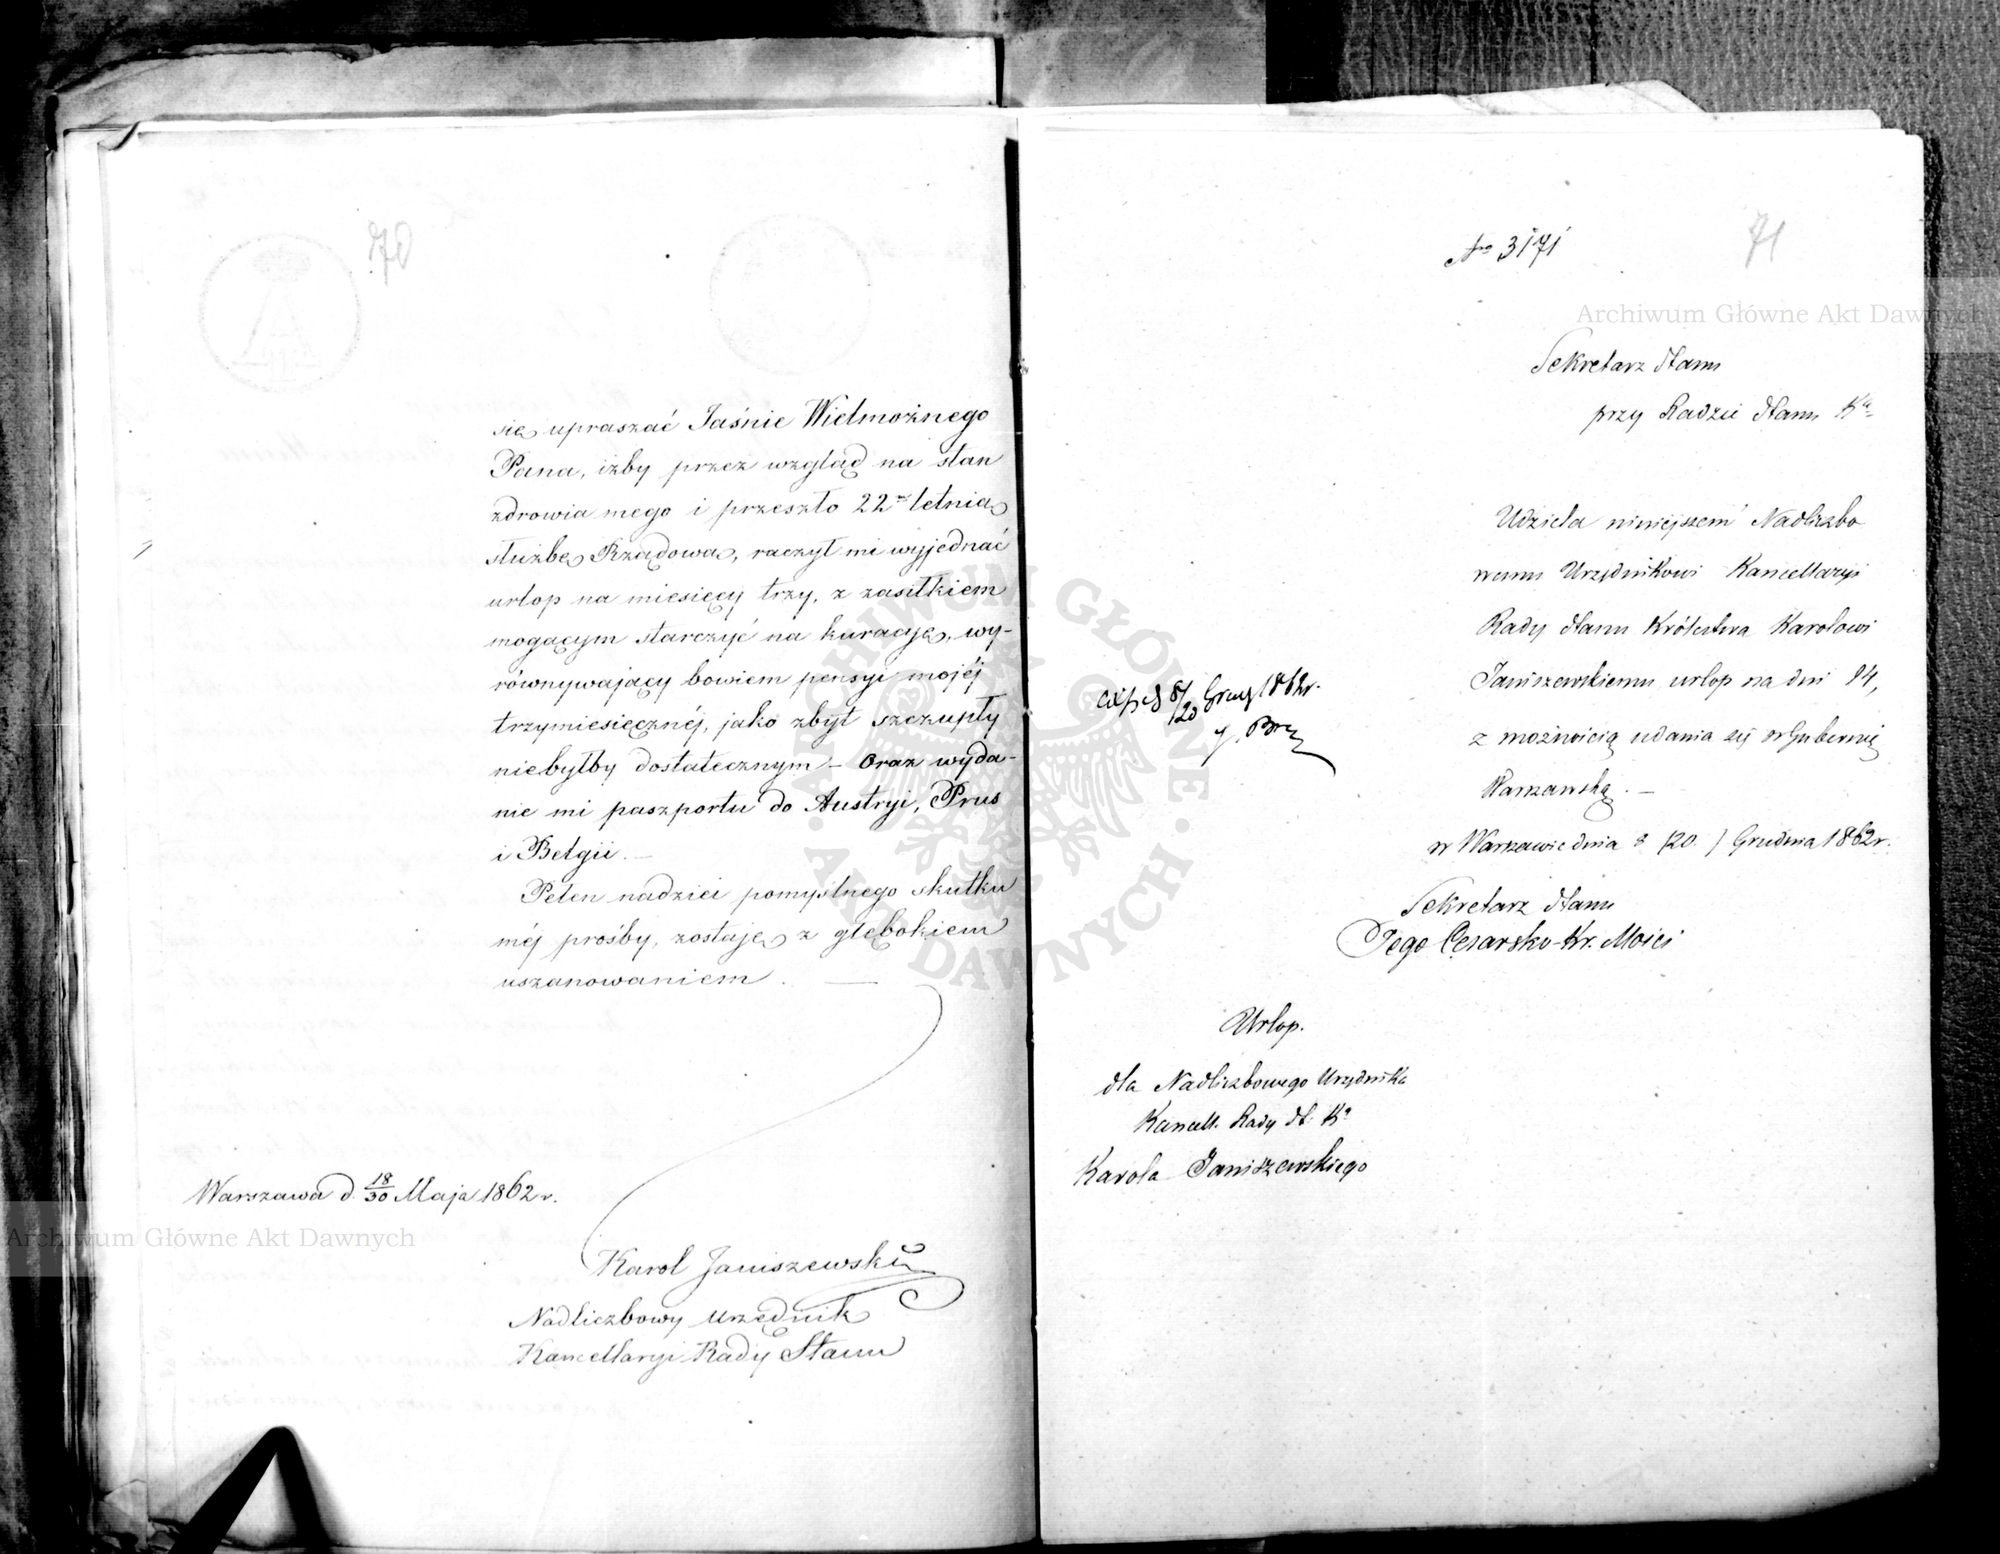 70
się upraszać Jaśnie Wielmożnego
Pana, iżby przez wzgląd na stan
zdrowia mego i przeszło 22 letnią
służbę Rządową, raczył mi wyjednać
urlop na miesięcy trzy, z zasiłkiem
mogącym starczyć na kuracje, wy-
równywający bowiem pensyi mojéj
trzymiesięcznéj, jako zbyt szczupły
niebyłby dostatecznym – Oraz wyda-
nie mi paszportu do Austryi, Prus
i Belgii. –
Pełen nadziei pomyślnego skutku
méj prośby, zostaję z głębokiem
uszanowaniem. –
Warszawa d. 18/30 Maja 1862 r.
Karol Janiszewski
Nadliczbowy urzędnik
Kancellaryi Rady Stanu
71
No 3171
Sekretarz Stanu
przy Radzie Stanu Kа
Udziela niniejszem Nadliczbo
wemu Urzędnikowi Kancellaryi
Rady Stanu Królestwa Karolowi
Janiszewskiemu urlop na dni 14,
z możnością udania się w Gubernię
Warszawską. –
w Warszawie dnia 8 /20./ Grudnia 1862 r.
Sekretarz Stanu
Jego Cesarsko-Kr. Mości
8/20 1862 r.
Urlop.
dla Nadliczbowego Urzędnika
Kancell. Rady St. Ka
Karola Janiszewskiego
Archiwum Główne Akt Dawnych
Archiwum Główne Akt Dawnych
ARCHIWUM GŁÓWNE AKT DAWNYCH